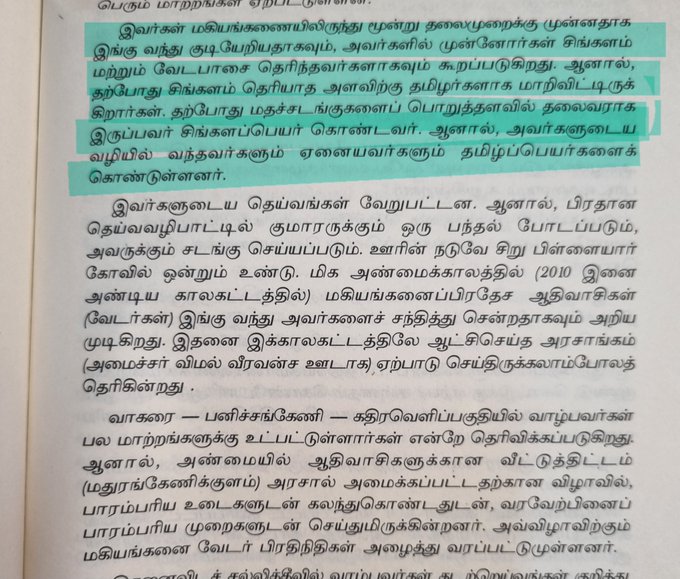 பெரும் மாற்றங்கள் ஏற்பட்டுள்ளன.
இவர்கள் மகியங்கணையிலிருந்து மூன்று தலைமுறைக்கு முன்னதாக
இங்கு வந்து குடியேறியதாகவும், அவர்களில் முன்னோர்கள் சிங்களம்
மற்றும் வேடபாசை தெரிந்தவர்களாகவும் கூறப்படுகிறது. ஆனால்,
தற்போது சிங்களம் தெரியாத அளவிற்கு தமிழர்களாக மாறிவிட்டிருக்
கிறார்கள். தற்போது மதச்சடங்குகளைப் பொறுத்தளவில் தலைவராக
இருப்பவர் சிங்களப்பெயர் கொண்டவர். ஆனால், அவர்களுடைய
வழியில் வந்தவர்களும் ஏனையவர்களும் தமிழ்ப்பெயர்களைக்
கொண்டுள்ளனர்.
இவர்களுடைய தெய்வங்கள் வேறுபட்டன. ஆனால், பிரதான
தெய்வவழிபாட்டில் குமாரருக்கும் ஒரு பந்தல் போடப்படும்,
அவருக்கும் சடங்கு செய்யப்படும். ஊரின் நடுவே சிறு பிள்ளையார்
கோவில் ஒன்றும் உண்டு. மிக அண்மைக்காலத்தில் (2010 இனை
அண்டிய காலகட்டத்தில்) மகியங்கனைப்பிரதேச ஆதிவாசிகள்
(வேடர்கள்) இங்கு வந்து அவர்களைச் சந்தித்து சென்றதாகவும் அறிய
முடிகிறது. இதனை இக்காலகட்டத்திலே ஆட்சிசெய்த அரசாங்கம்
(அமைச்சர் விமல் வீரவன்ச ஊடாக) ஏற்பாடு செய்திருக்கலாம்போலத்
தெரிகின்றது .
வாகரை — பனிச்சங்கேணி — கதிரவெளிப்பகுதியில் வாழ்பவர்கள்
பல மாற்றங்களுக்கு உட்பட்டுள்ளார்கள் என்றே தெரிவிக்கப்படுகிறது.
ஆனால், அண்மையில் ஆதிவாசிகளுக்கான வீட்டுத்திட்டம்
(மதுரங்கேணிக்குளம்) அரசால் அமைக்கப்பட்டதற்கான விழாவில்,
பாரம்பரிய உடைகளுடன் கலந்துகொண்டதுடன், வரவேற்பினைப்
பாரம்பரிய முறைகளுடன் செய்துமிருக்கின்றனர். அவ்விழாவிற்கும்
மகியங்கனை வேடர் பிரதிநிதிகள் அழைத்து வரப்பட்டுமுள்ளனர்.